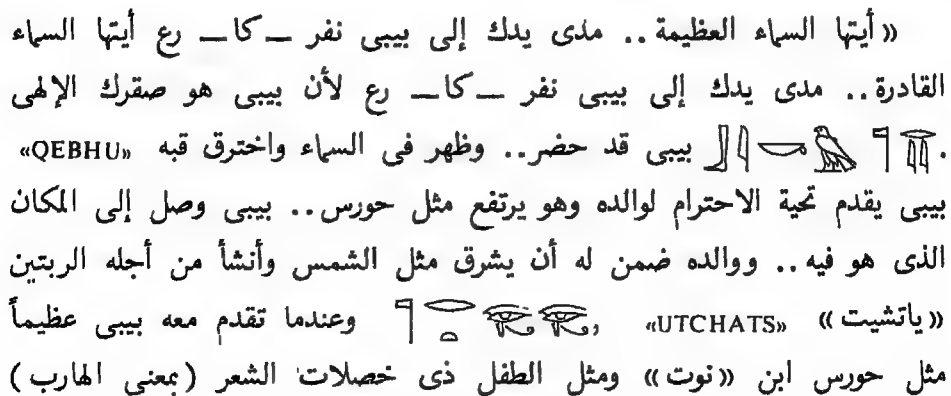 «أيتها السماء العظيمة.. مدى يدك إلى بيبى نفر ــ كا ــ رع أيتها السماء
القادرة.. مدى يدك إلى بيبى نفر ــ كا ــ رع لأن بيبى هو صقرك الإلهى
. بيبى قد حضر.. وظهر فى السماء واخترق قبه «QEBHU»
بيبى يقدم تحية الاحترام لوالده وهو يرتفع مثل حورس.. بيبى وصل إلى المكان
الذى هو فيه.. ووالده ضمن له أن يشرق مثل الشمس وأنشأ من أجله الربتين
«ياتشيت» «UTCHATS», وعندما تقدم معه بيبى عظيماً
مثل حورس ابن «نوت» ومثل الطفل ذى خصلات الشعر (بمعنى الهارب)